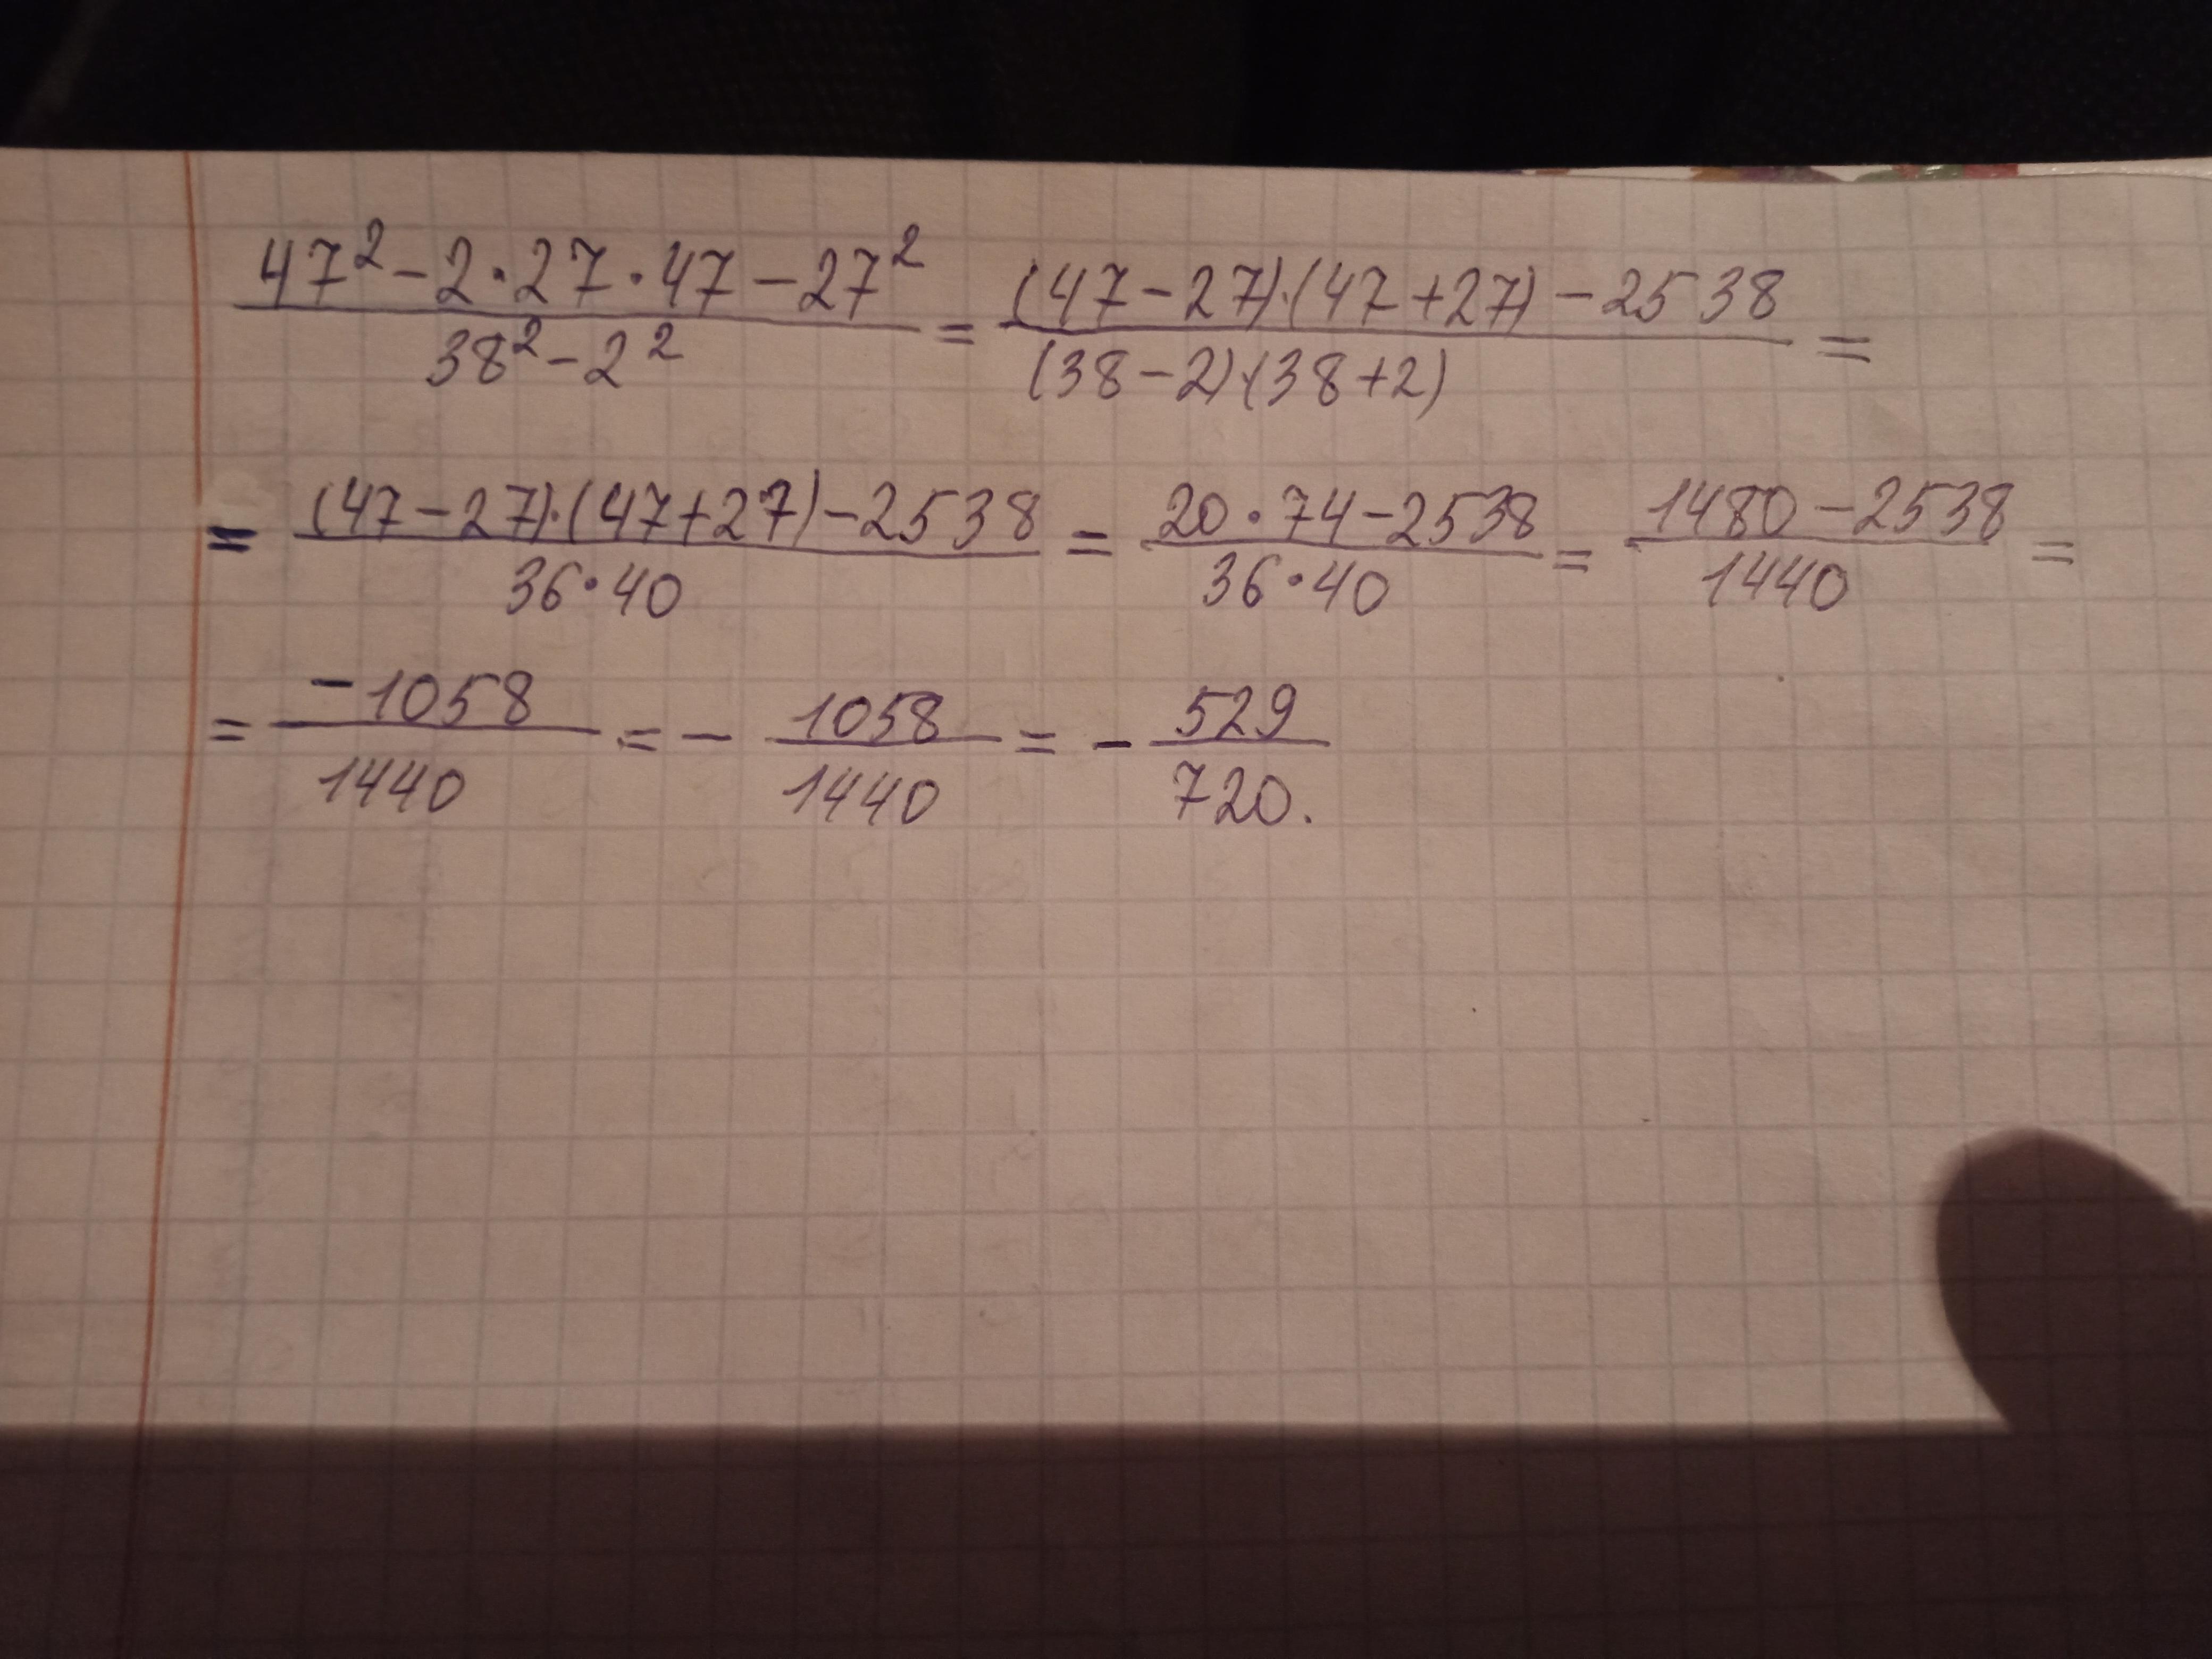 (47² - 2 · 27 · 47 - 27²)/(38² - 2²) = ((47 - 27) · (47 + 27) - 2538)/((38 - 2) · (38 + 2)) =
= ((47 - 27) · (47 + 27) - 2538)/(36 · 40) = (20 · 74 - 2538)/(36 · 40) = (1480 - 2538)/1440 =
= -1058/1440 = - 1058/1440 = - 529/720.